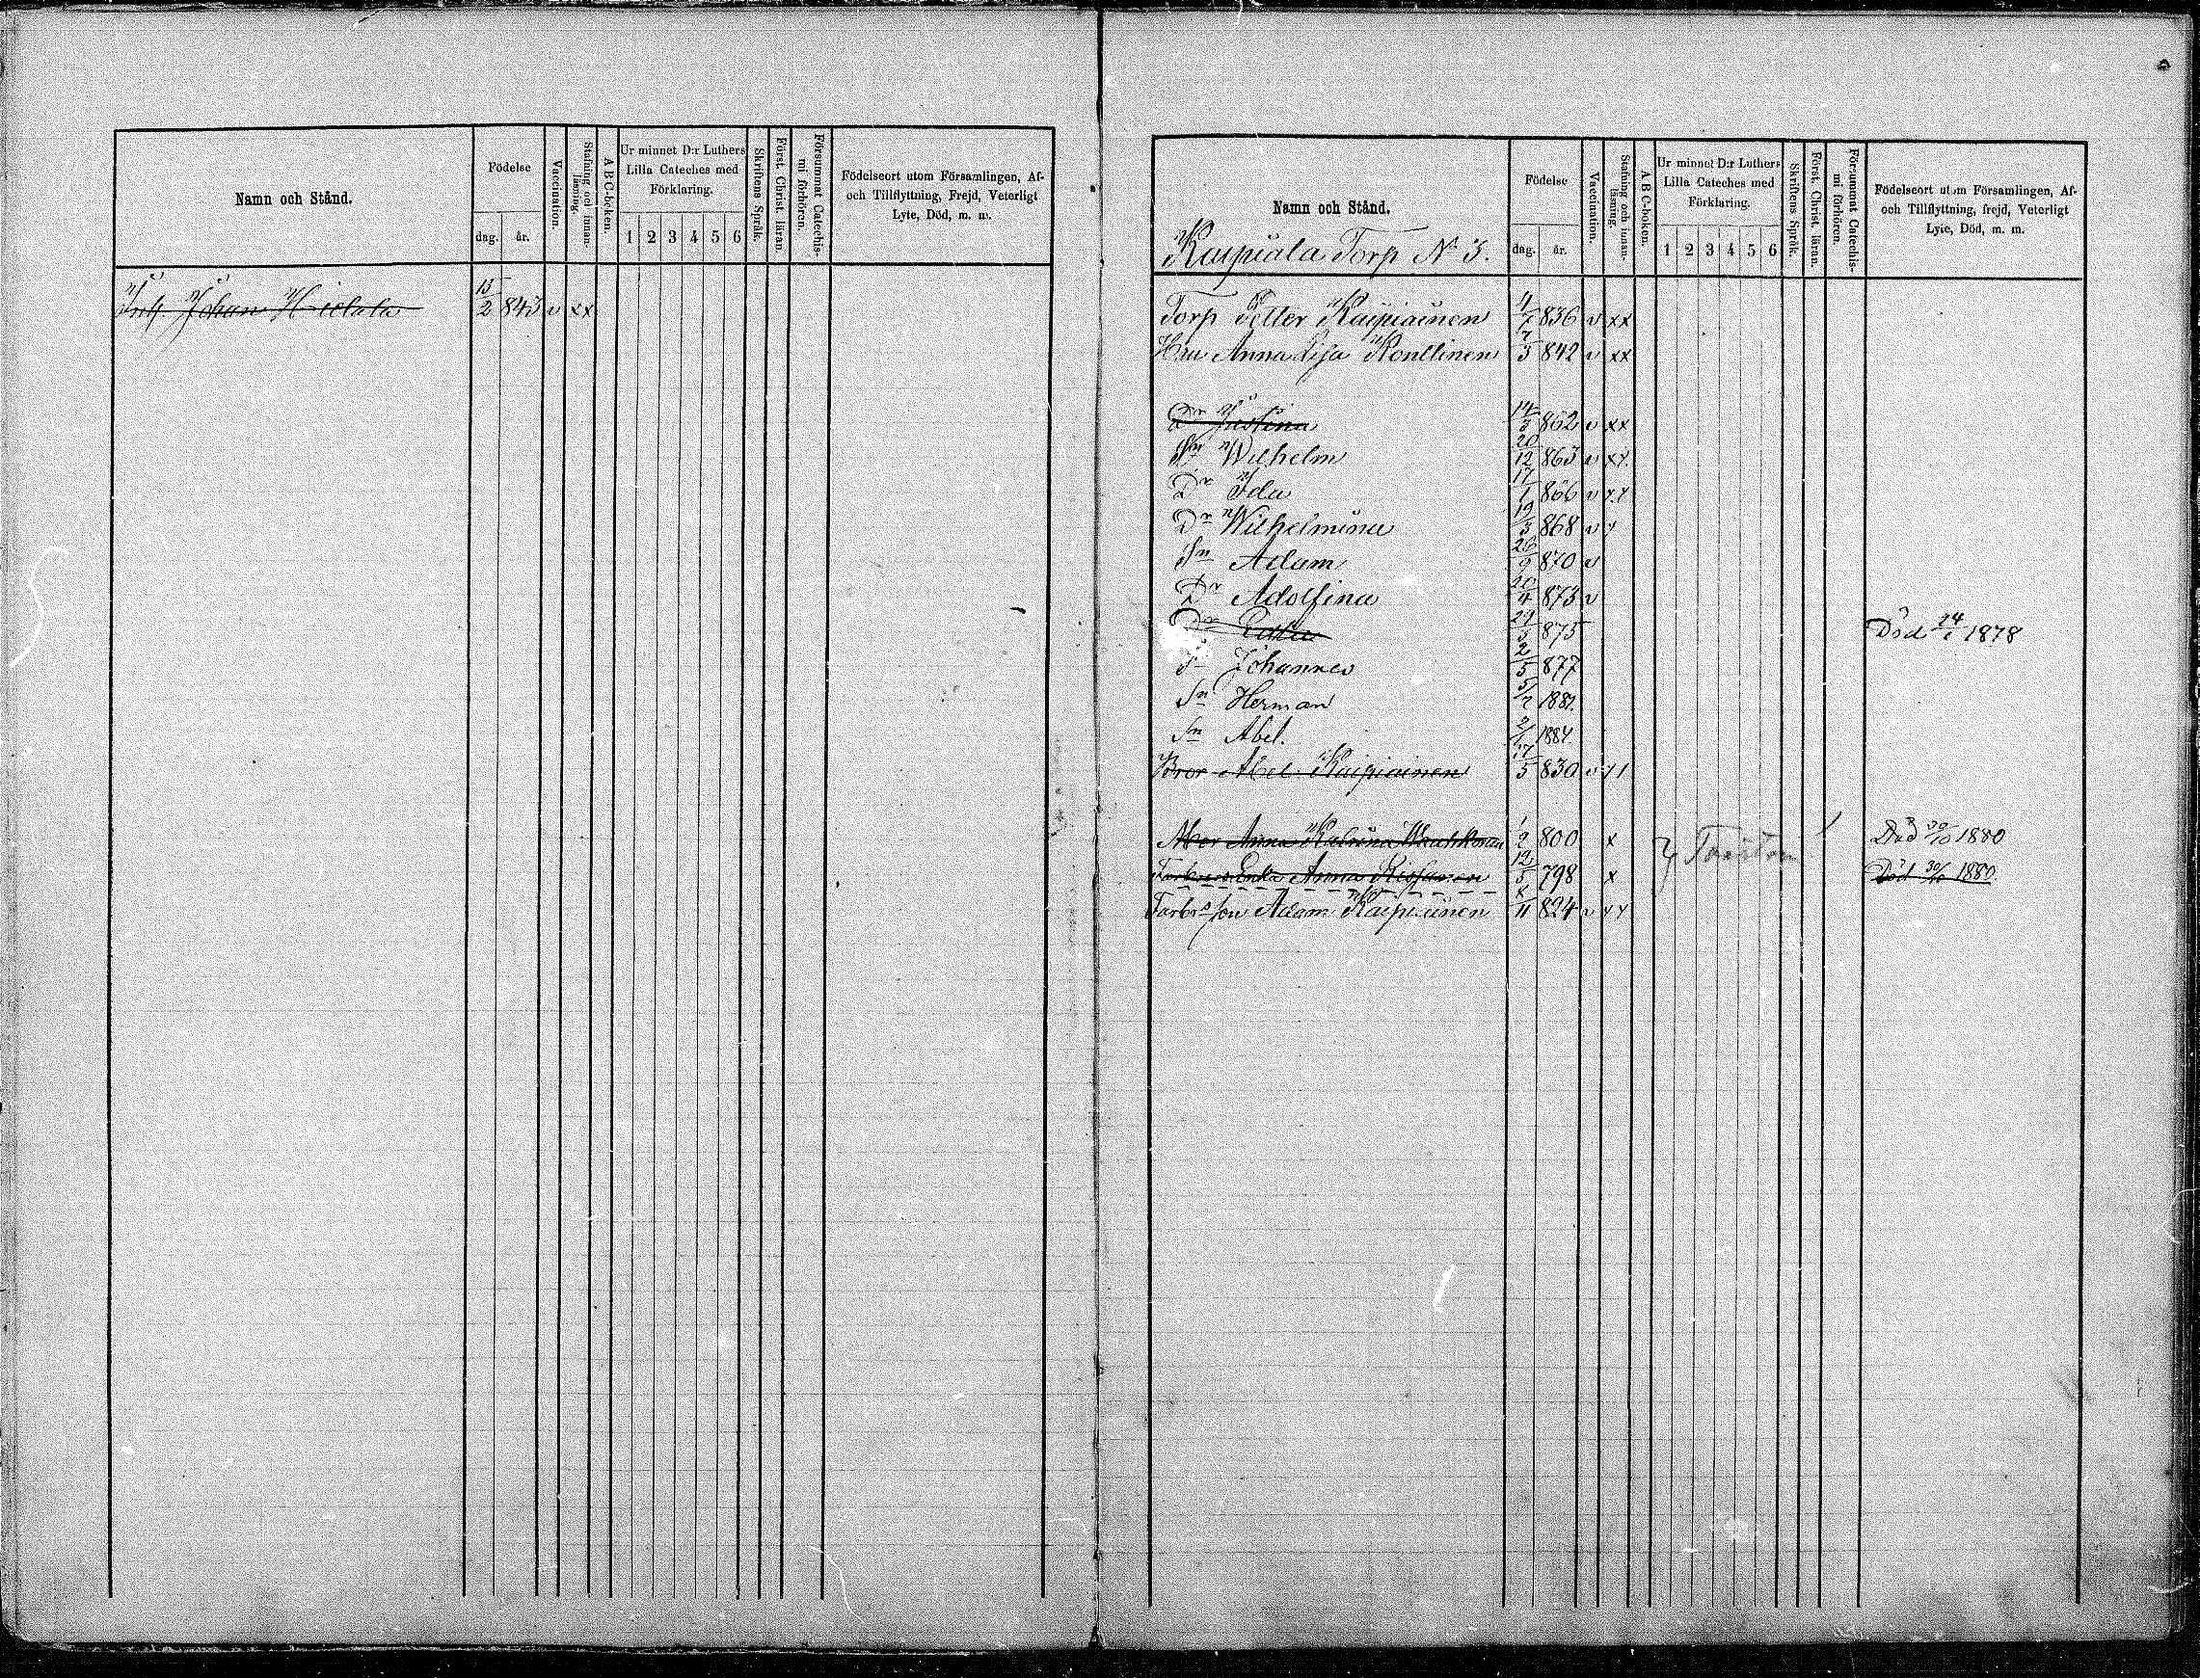 Namn och Stånd.
Födelse
dag.
år.
Vaccination.
Stafning och innanläsning.
A B C-boken.
Ur minnet D:r Luthers Lilla Cateches med Förklaring.
1 2 3 4 5 6
Skriftens Språk.
Först. Christ. läran.
Försummat Catechismi förhören.
Födelseort utom Församlingen, Af-
och Tillflyttning, Frejd, Veterligt
Lyte, Död, m. m.
Johan Hietala 13/2 843 v xx
Namn och Stånd.
Kaipiala Torp N° 3.
Födelse
dag.
år.
Vaccination.
Stafning och innanläsning.
A B C-boken.
Ur minnet D:r Luthers Lilla Cateches med Förklaring.
1 2 3 4 5 6
Skriftens Språk.
Först. Christ. läran.
Försummat Catechismi förhören.
Födelseort utom Församlingen, Af-
och Tillflyttning, frejd, Veterligt
Lyte, Död, m. m.
Torp Petter Kaipiainen 4/7 836 v xx
Hu Anna Lisa Konttinen 7/3 842 v xx
Dr Justina 14/3 862 v xx
Sn Wilhelm 20/12 863 v xx
Dr Ida 17/1 866 v xx
Dr Wilhelmina 19/3 868 v x
Sn Adam 26/9 870 v
Dr Adolfina 20/4 873 v
Dr Edla 29/3 875 Död 24/1 1878
Sn Johannes 2/5 877
Sn Herman 5/7 1881.
Sn Abel. 1884.
Bror Abel Kaipiainen 17/5 830 v
Mor Anna Katrina 1/2 800 x Död 30/10 1880
Farbrors Enka Anna 12/3 798 x Död 30/10 1880.
Farbrs son Adam Kaipiainen 8/11 824 v